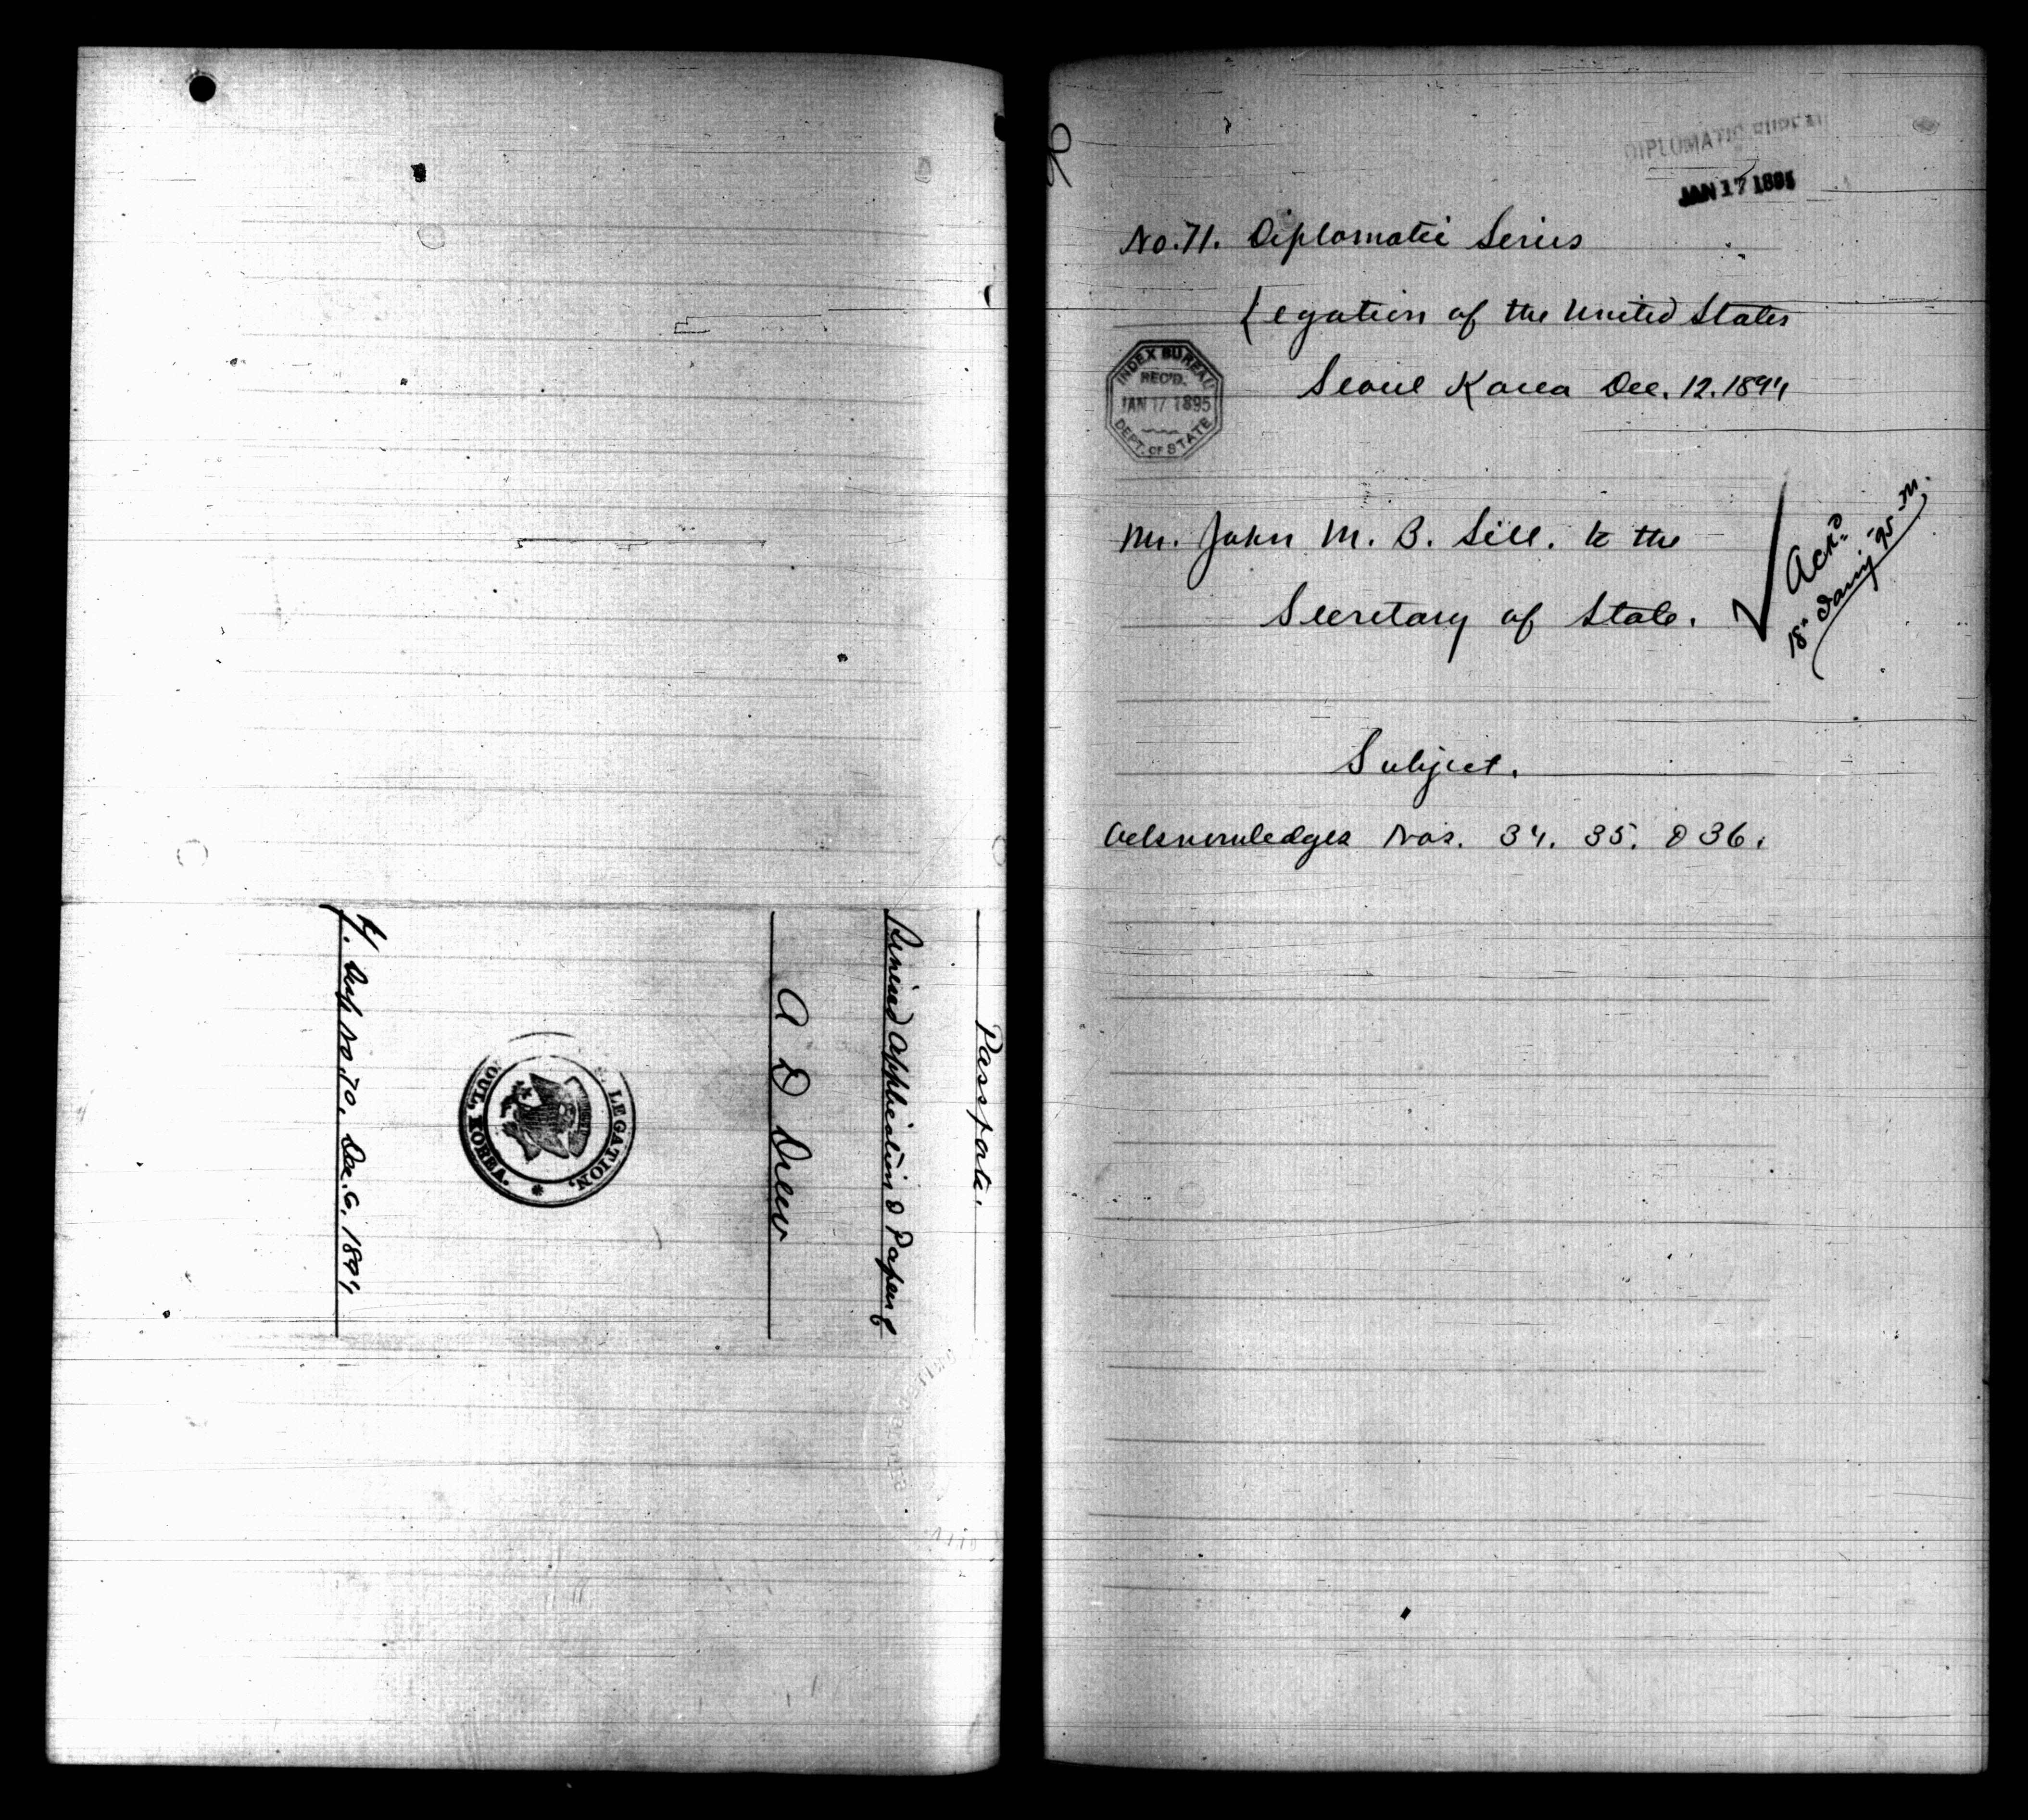 Passports.
Renewed Application & Papers of
A D Drew
LEGATION,
OUL, KOREA.
Dip No. 70. Dec. 6. 1894
DIPLOMATIC BUREAU
JAN 17 1895
No. 71. Diplomatic Series
Legation of the United States
Seoul Korea Dec. 12. 1894
INDEX BUREAU
REC'D.
JAN 17 1895
DEPT. OF STATE
Mr. John M. B. Sill. to the
Secretary of State.
Ack'd
18" Jany '95 - M.
Subject.
Acknowledges Nos. 34. 35. & 36.